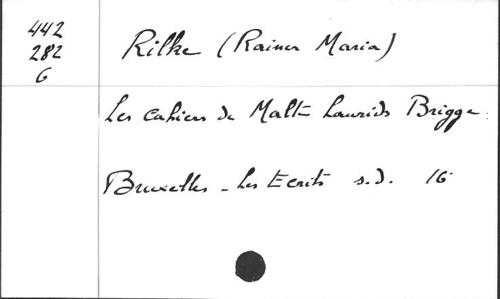 442
282
G
Rilke (Rainer Maria)
Les cahiers de Malte Laurids Brigge.
Bruxelles - Les Ecrits s.d. 16